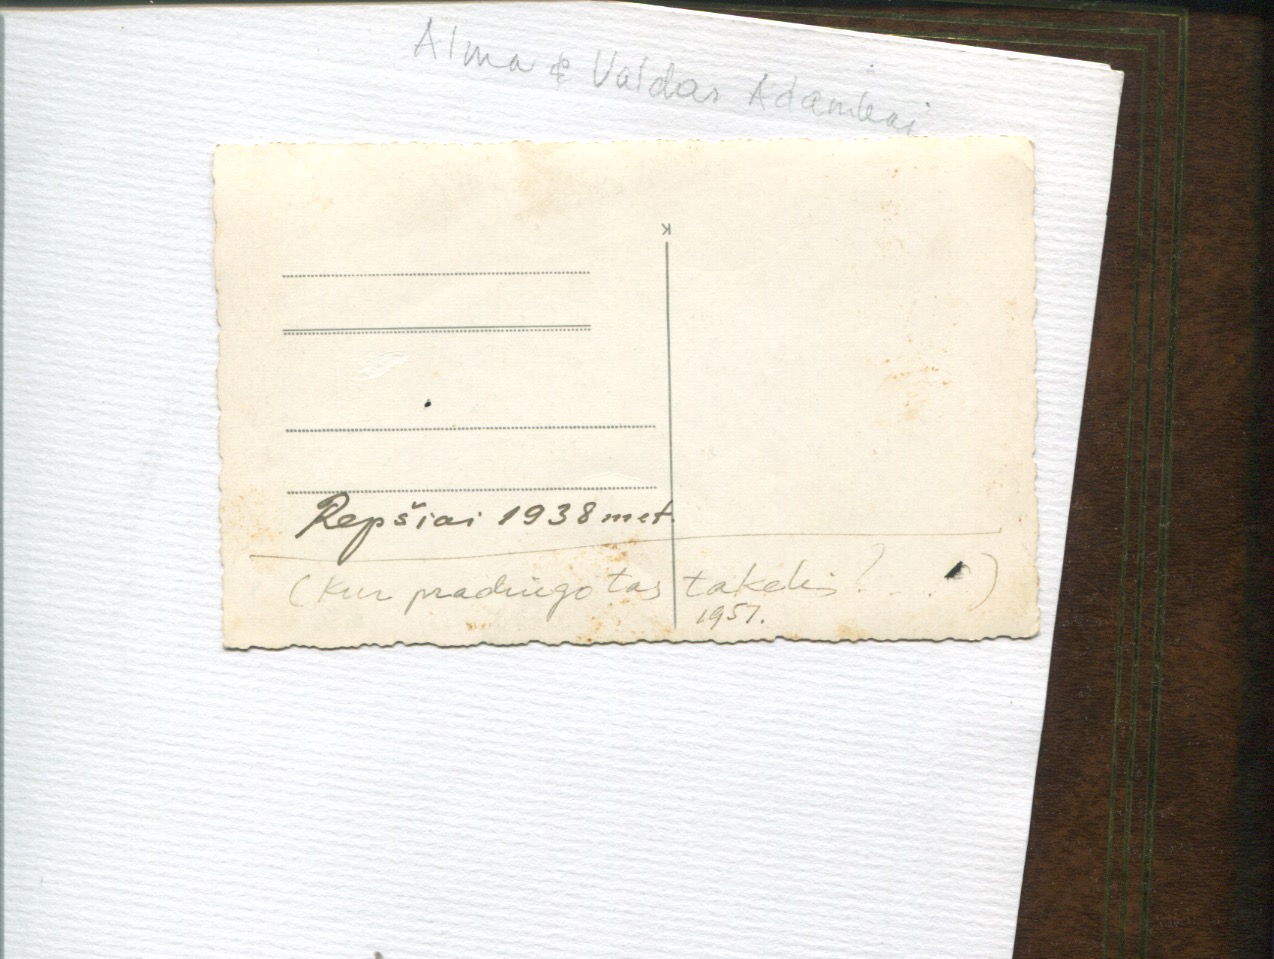 Alma & Valdas Adamkai
K
Repšiai 1938 met.
(Kur pradingo tas takelis? . . .)
1957.